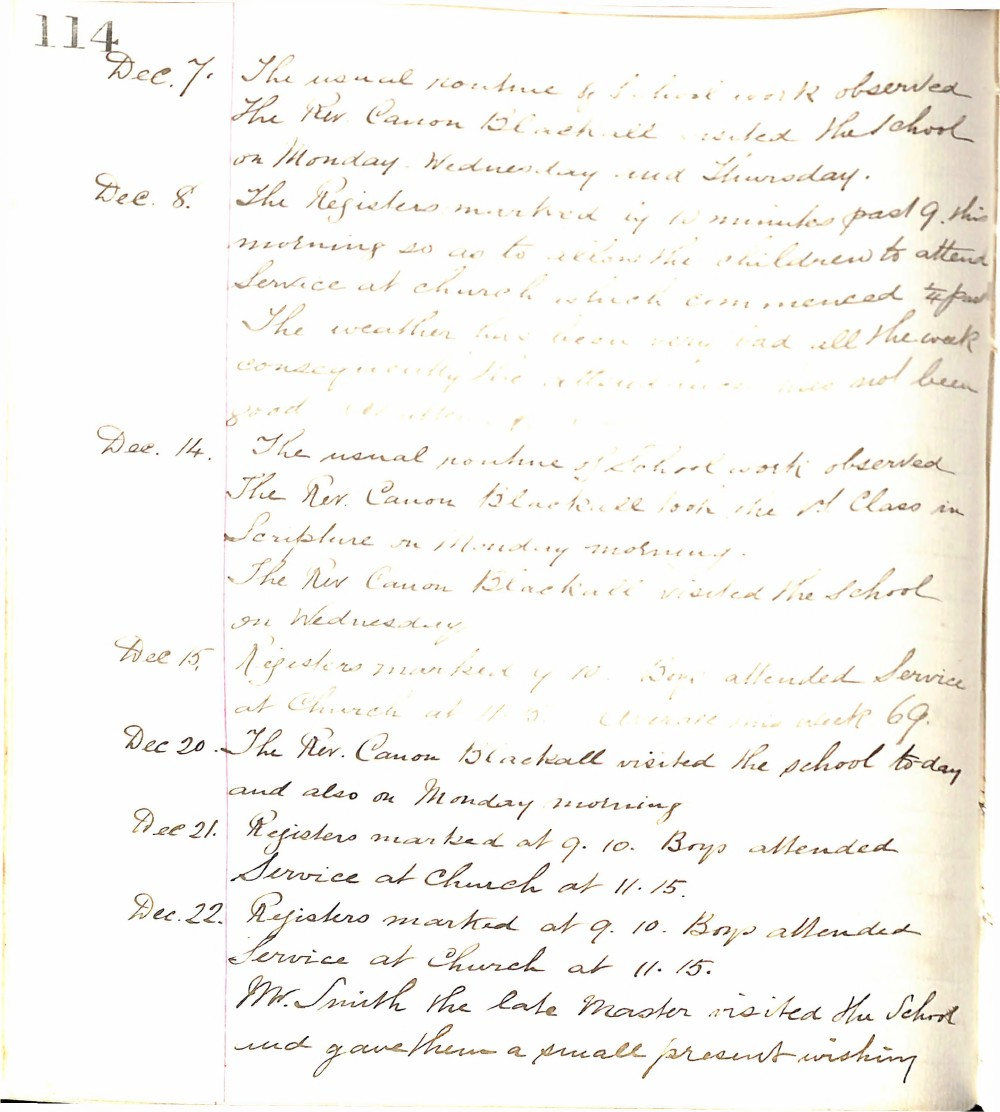 114
Dec. 7. The usual routine of School work observed
The Rev. Canon Blackall visited the School
on Monday. Wednesday and Thursday.
Dec. 8. The Registers marked by 10 minutes past 9. this
morning so as to allow the children to attend
Service at church which commenced ¼ past
The weather has been very bad all the week
consequently the attendance has not been
good
Dec. 14. The usual routine of School work observed
The Rev. Canon Blackall took the 1st Class in
Scripture on Monday morning.
The Rev Canon Blackall visited the School
on Wednesday
Dec 15. Registers marked 9 10. Boys attended Service
at Church at 11. Average this week 69.
Dec 20. The Rev. Canon Blackall visited the school to-day
and also on Monday morning
Dec 21. Registers marked at 9. 10. Boys attended
Service at Church at 11.15.
Dec. 22. Registers marked at 9. 10. Boys attended
Service at Church at 11.15.
Mr. Smith the late Master visited the School
and gave them a small present wishing